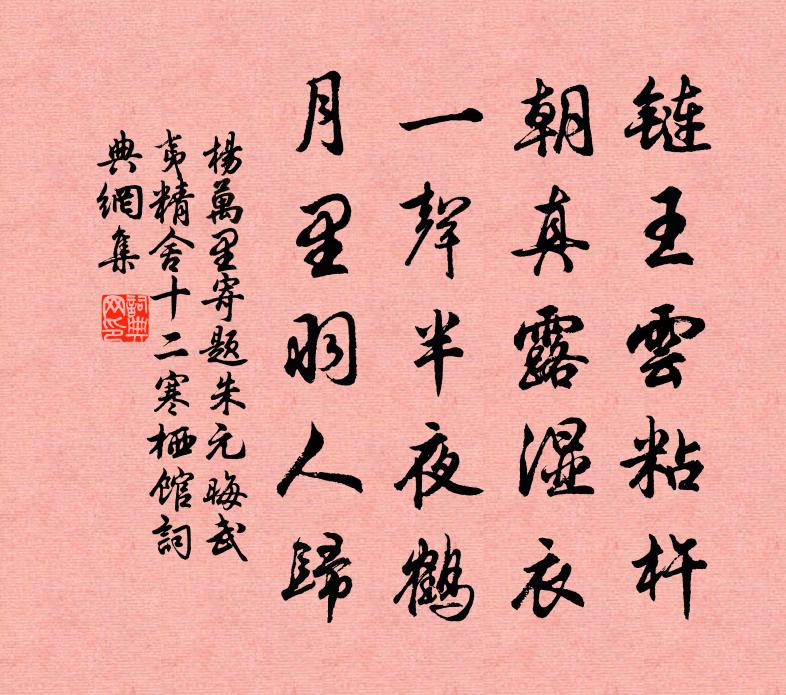 鏈王雲粘杵
朝真露湿衣
一聲半夜鶴
月里羽人歸
楊萬里寄題朱元晦武
夷精舍十二寒栖館詞
典網集
詞典
网印